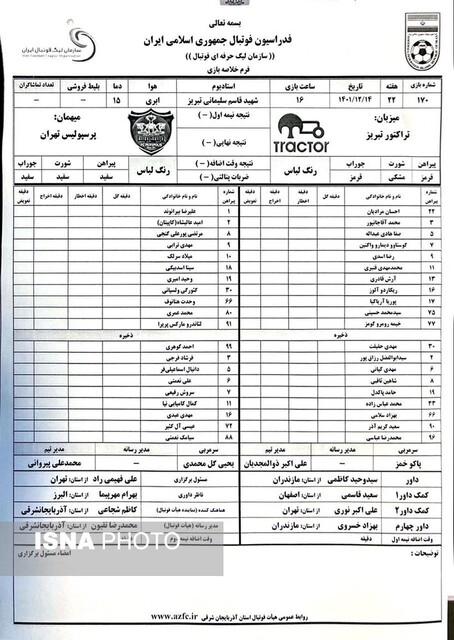 بسمه تعالی
فدراسیون فوتبال جمهوری اسلامی ایران
(( سازمان لیگ حرفه ای فوتبال ))
فرم خلاصه بازی
سازمان لیگ فوتبال ایران
شماره بازی هفته تاریخ ساعت بازی استادیوم هوا دما بلیط فروشی تعداد تماشاگران
۱۷۰ ۲۲ ۱۴۰۱/۱۲/۱۴ ۱۶ شهید قاسم سلیمانی تبریز ابری ۱۵ – –
میزبان: تراکتور تبریز
TRACTOR
نتیجه نیمه اول: ( – )
نتیجه نهایی: ( – )
نتیجه وقت اضافه: ( – )
ضربات پنالتی: ( – )
میهمان: پرسپولیس تهران
پیراهن شورت جوراب رنگ لباس
قرمز مشکی قرمز
رنگ لباس پیراهن شورت جوراب
سفید سفید سفید
شماره پیراهن نام و نام خانوادگی دقیقه گل دقیقه اخطار دقیقه اخراج دقیقه تعویض
۲۲ احسان مرادیان
۳ محمد آقاجانپور
۵ صفا هادی عبداله
۷ گوستاوو دیمارو واگنین
۹ رضا اسدی
۱۱ محمدمهدی قنبری
۱۳ آرش قادری
۱۶ ریکاردو آلوز
۱۷ پوریا آریاکیا
۷۵ سیدمحمد حسینی
۷۷ خیمه رومرو گومز
ذخیره
۳۰ مهدی حقیقت
۲ سیدابوالفضل رزاق پور
۶ مهدی کیانی
۸ شاهین ثاقبی
۱۹ حامد پاکدل
۴۳ محمد عباس زاده
۶۶ بهزاد سلامی
۹۰ سعید کریم آذر
۹۶ محمدرضا عباسی
شماره پیراهن نام و نام خانوادگی دقیقه گل دقیقه اخطار دقیقه اخراج دقیقه تعویض
۱ علیرضا بیرانوند
۲ امید عالیشاه(کاپیتان)
۸ مرتضی پورعلی گنجی
۹ مهدی ترابی
۱۰ میلاد سرلک
۱۸ سینا اسدبیگی
۱۹ وحید امیری
۳۰ گئورگی ولسیانی
۶۶ وحدت هنانوف
۸۰ محمد عمری
۹۱ لئاندرو مارکس پریرا
ذخیره
۹۹ احمد گوهری
۳ فرشاد فرجی
۵ دانیال اسماعیلی‌فر
۶ علی نعمتی
۷ سروش رفیعی
۱۱ کمال کامیابی نیا
۱۶ مهدی عبدی
۷۲ عیسی آل کثیر
۸۸ سیامک نعمتی
سرمربی مدیر رسانه مدیر تیم
پاکو خمز – علی اکبر ذوالمجدیان
سرمربی مدیر رسانه مدیر تیم
یحیی گل محمدی – محمدعلی پیروانی
داور سیدوحید کاظمی از استان: مازندران
کمک داور۱ سعید قاسمی از استان: اصفهان
کمک داور۲ علی اکبر نوری از استان: تهران
داور چهارم بهزاد خسروی از استان: مازندران
وقت اضافه نیمه اول دقیقه
مسئول برگزاری علی فهیمی راد از استان: تهران
ناظر داوری بهرام مهرپیما از استان: البرز
هماهنگ کننده (نماینده هیأت فوتبال) کاظم شجاعی از استان: آذربایجانشرقی
مدیر رسانه (هیأت فوتبال) محمدرضا نقیون از استان: آذربایجانشرقی
وقت اضافه نیمه دوم دقیقه
توضیحات :
امضاء مسئول برگزاری
ISNA PHOTO
روابط عمومی هیأت فوتبال استان آذربایجان شرقی www.azfc.ir